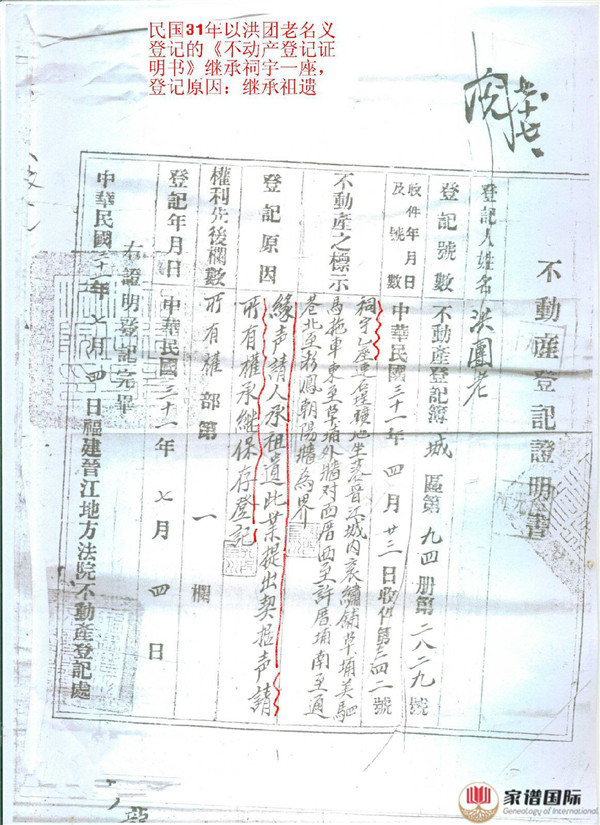 民国31年以洪团老名义
登记的《不动产登记证
明书》继承祠宇一座，
登记原因：继承祖遗
不動產登記證明書
登記人姓名 洪團老
登記號數 不動產登記簿城區第九四册第二八二九號
收件年月日及號數 中華民國三十一年四月廿三日收件第三四一號
不動產之標示 祠宇乙座連石埕曠地坐落晉江城內衮繡鋪草埔美駟
馬拖車東至草埔外牆对西厝西至許厝埔南至通
巷北至彩鳳朝陽牆為界
登記原因 緣声請人承祖遺此業提出契据声請
所有權承継保存登記
權利先後欄數 所有權部第一欄
登記年月日 中華民國三十一年七月四日
右證明登記完畢
中華民國三十一年七月四日福建晉江地方法院不動產登記處
家谱国际
Genealogy of International